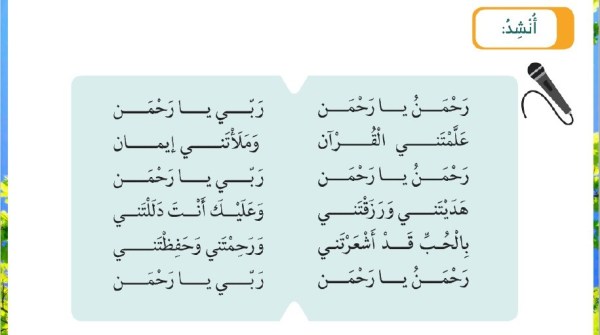 أُنْشِدُ:
رَحْمَـنُ يـا رَحْمَـن رَبّـي يـا رَحْمَـن
عَلَّمْتَني الْقُرْآن وَمَلَأْتَنـي إيمـان
رَحْمَـنُ يـا رَحْمَـن رَبّـي يـا رَحْمَـن
هَدَيْتَنـي وَرَزَقْتَني وَعَلَيْـكَ أَنْـتَ دَلَلْتَني
بِالْحُبِّ قَـدْ أَشْعَرْتَني وَرَحِمْتَني وَحَفِظْتَني
رَحْمَـنُ يـا رَحْمَـن رَبّـي يـا رَحْمَـن